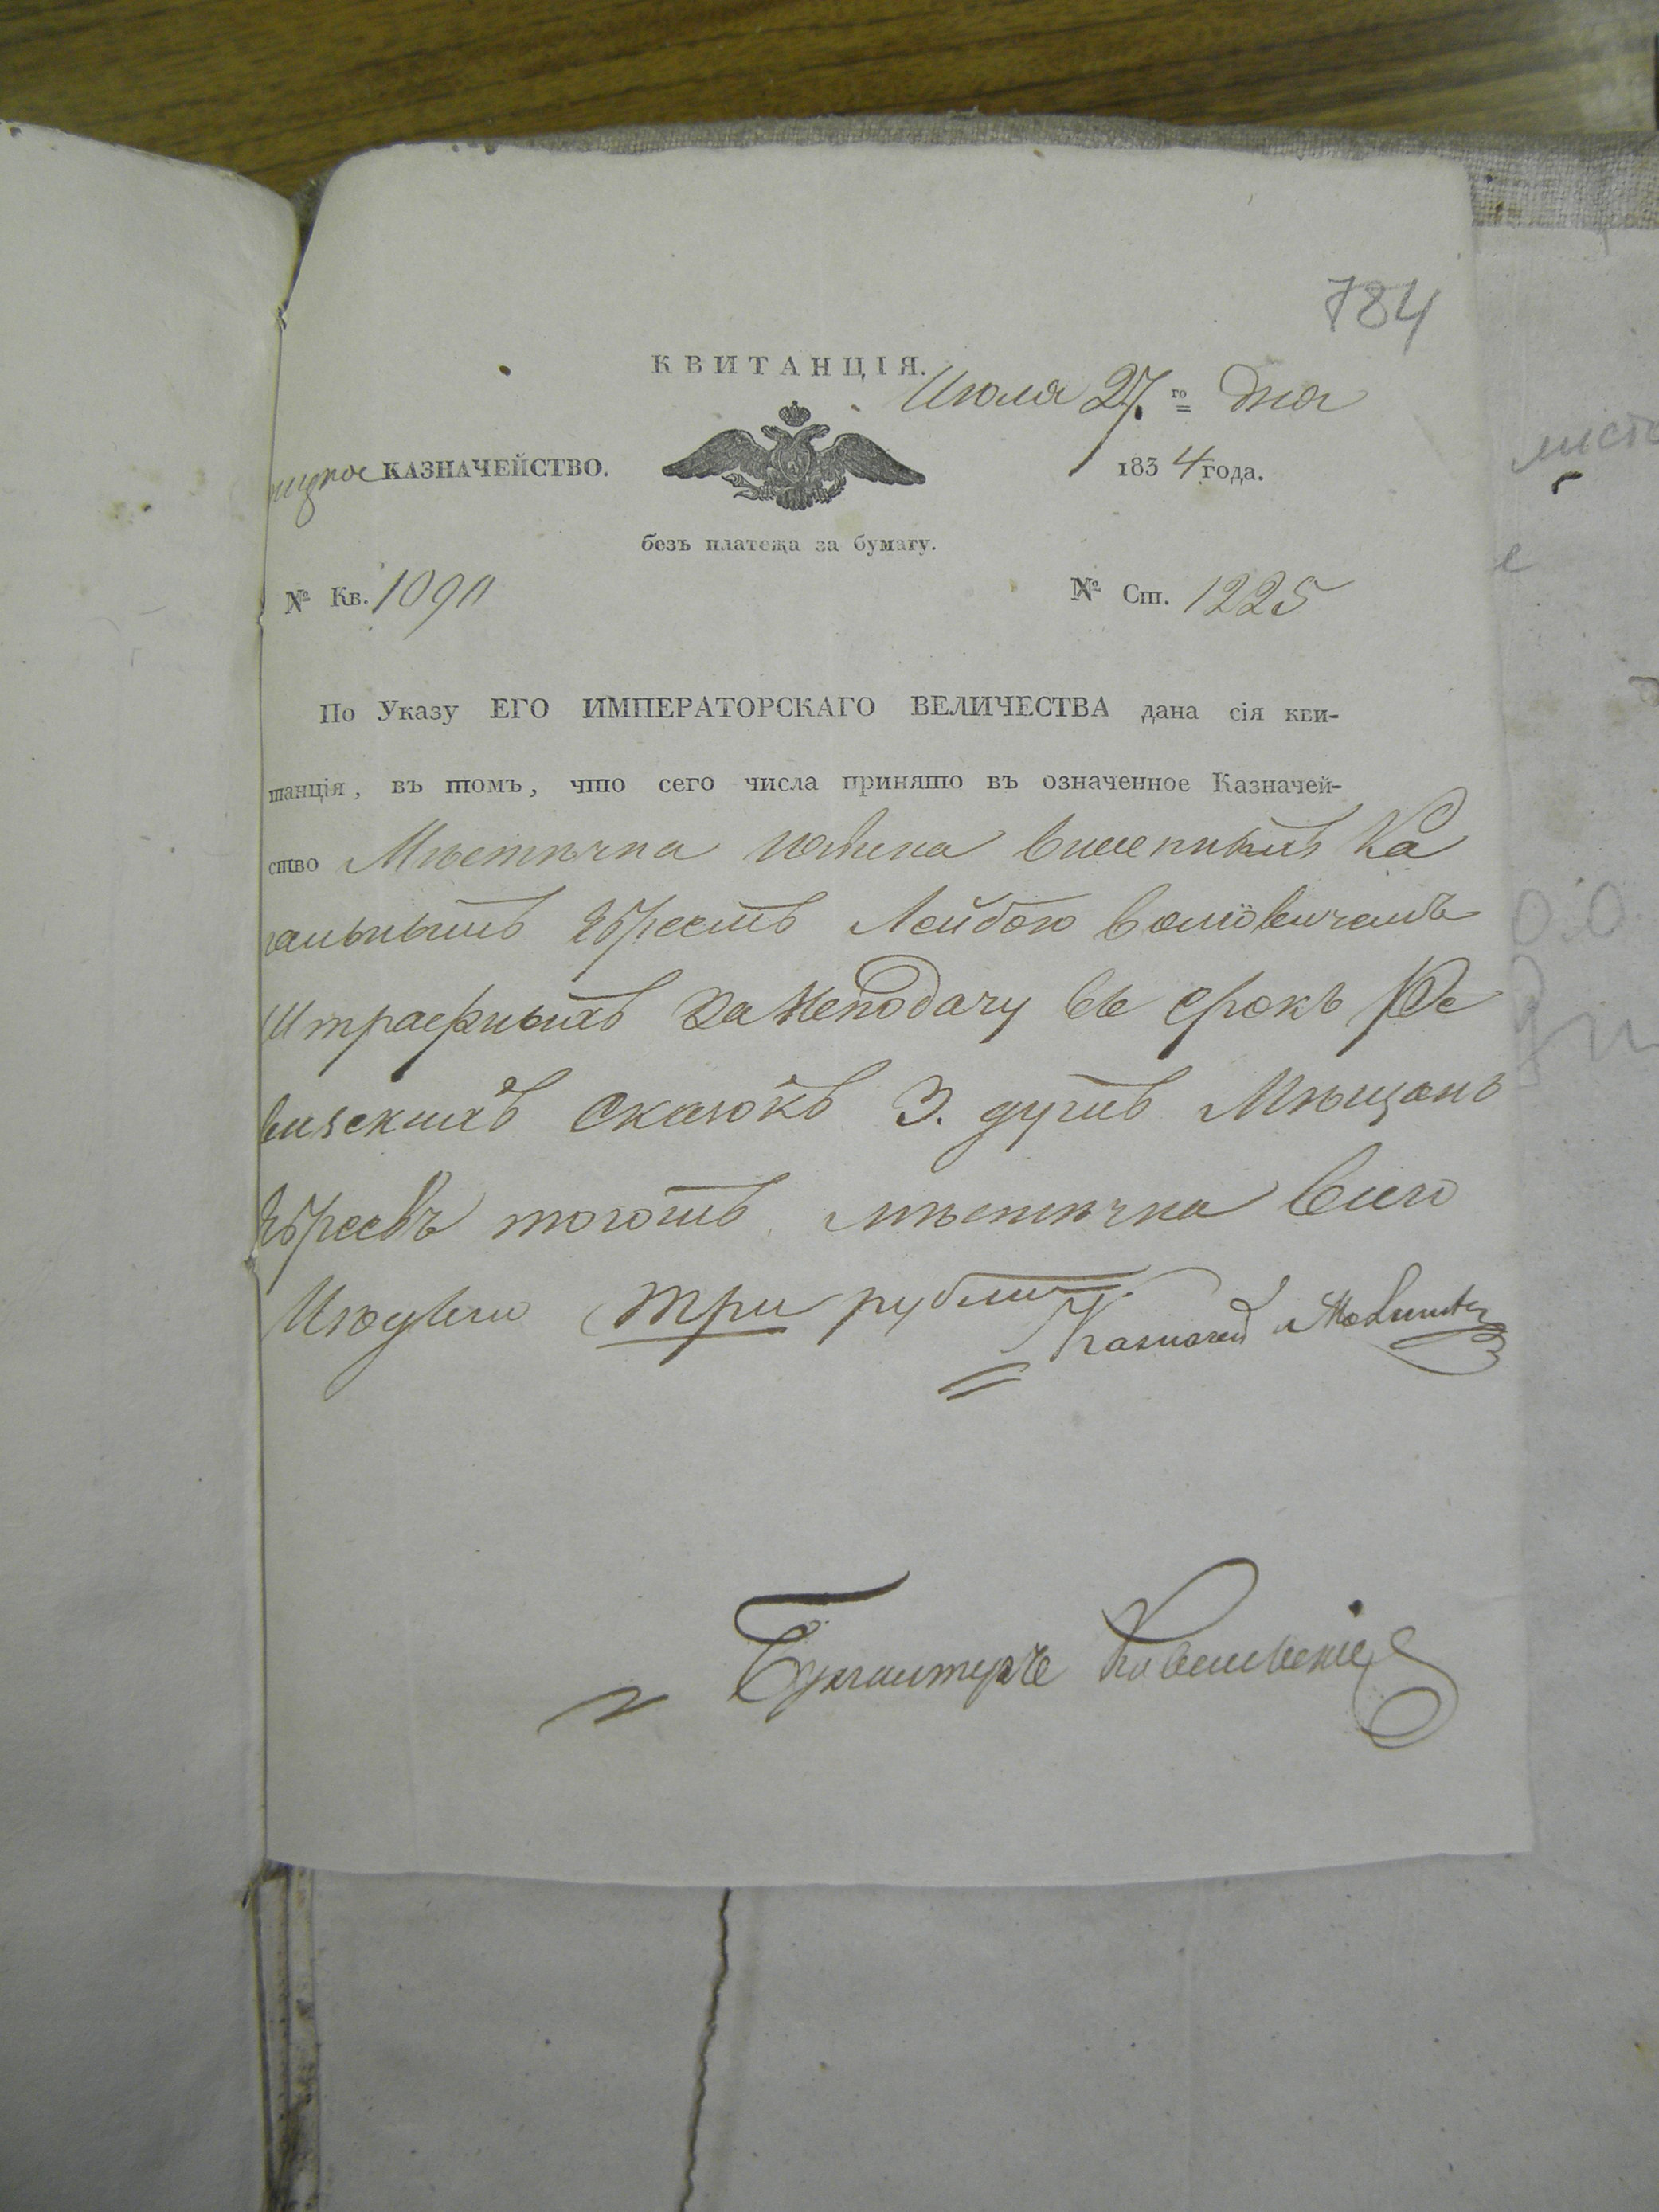 784
КВИТАНЦІЯ.
Июля 27.го дня
КАЗНАЧЕЙСТВО.
1834 года.
безъ платежа за бумагу.
№ Кв. 1090
№ Ст. 1225
По Указу ЕГО ИМПЕРАТОРСКАГО ВЕЛИЧЕСТВА дана сія кви-
танція, въ томъ, что сего числа принято въ означенное Казначей-
ство Мѣстѣчка Ка
гальнымъ Евреемъ Лейбою
Штрафныхъ За Неподачу въ Срокъ Ре
визскихъ Сказокъ 3. душъ Мѣщанъ
Евреевъ тогожъ мѣстѣчка
три рубли.
Казначей
Бухгалтеръ